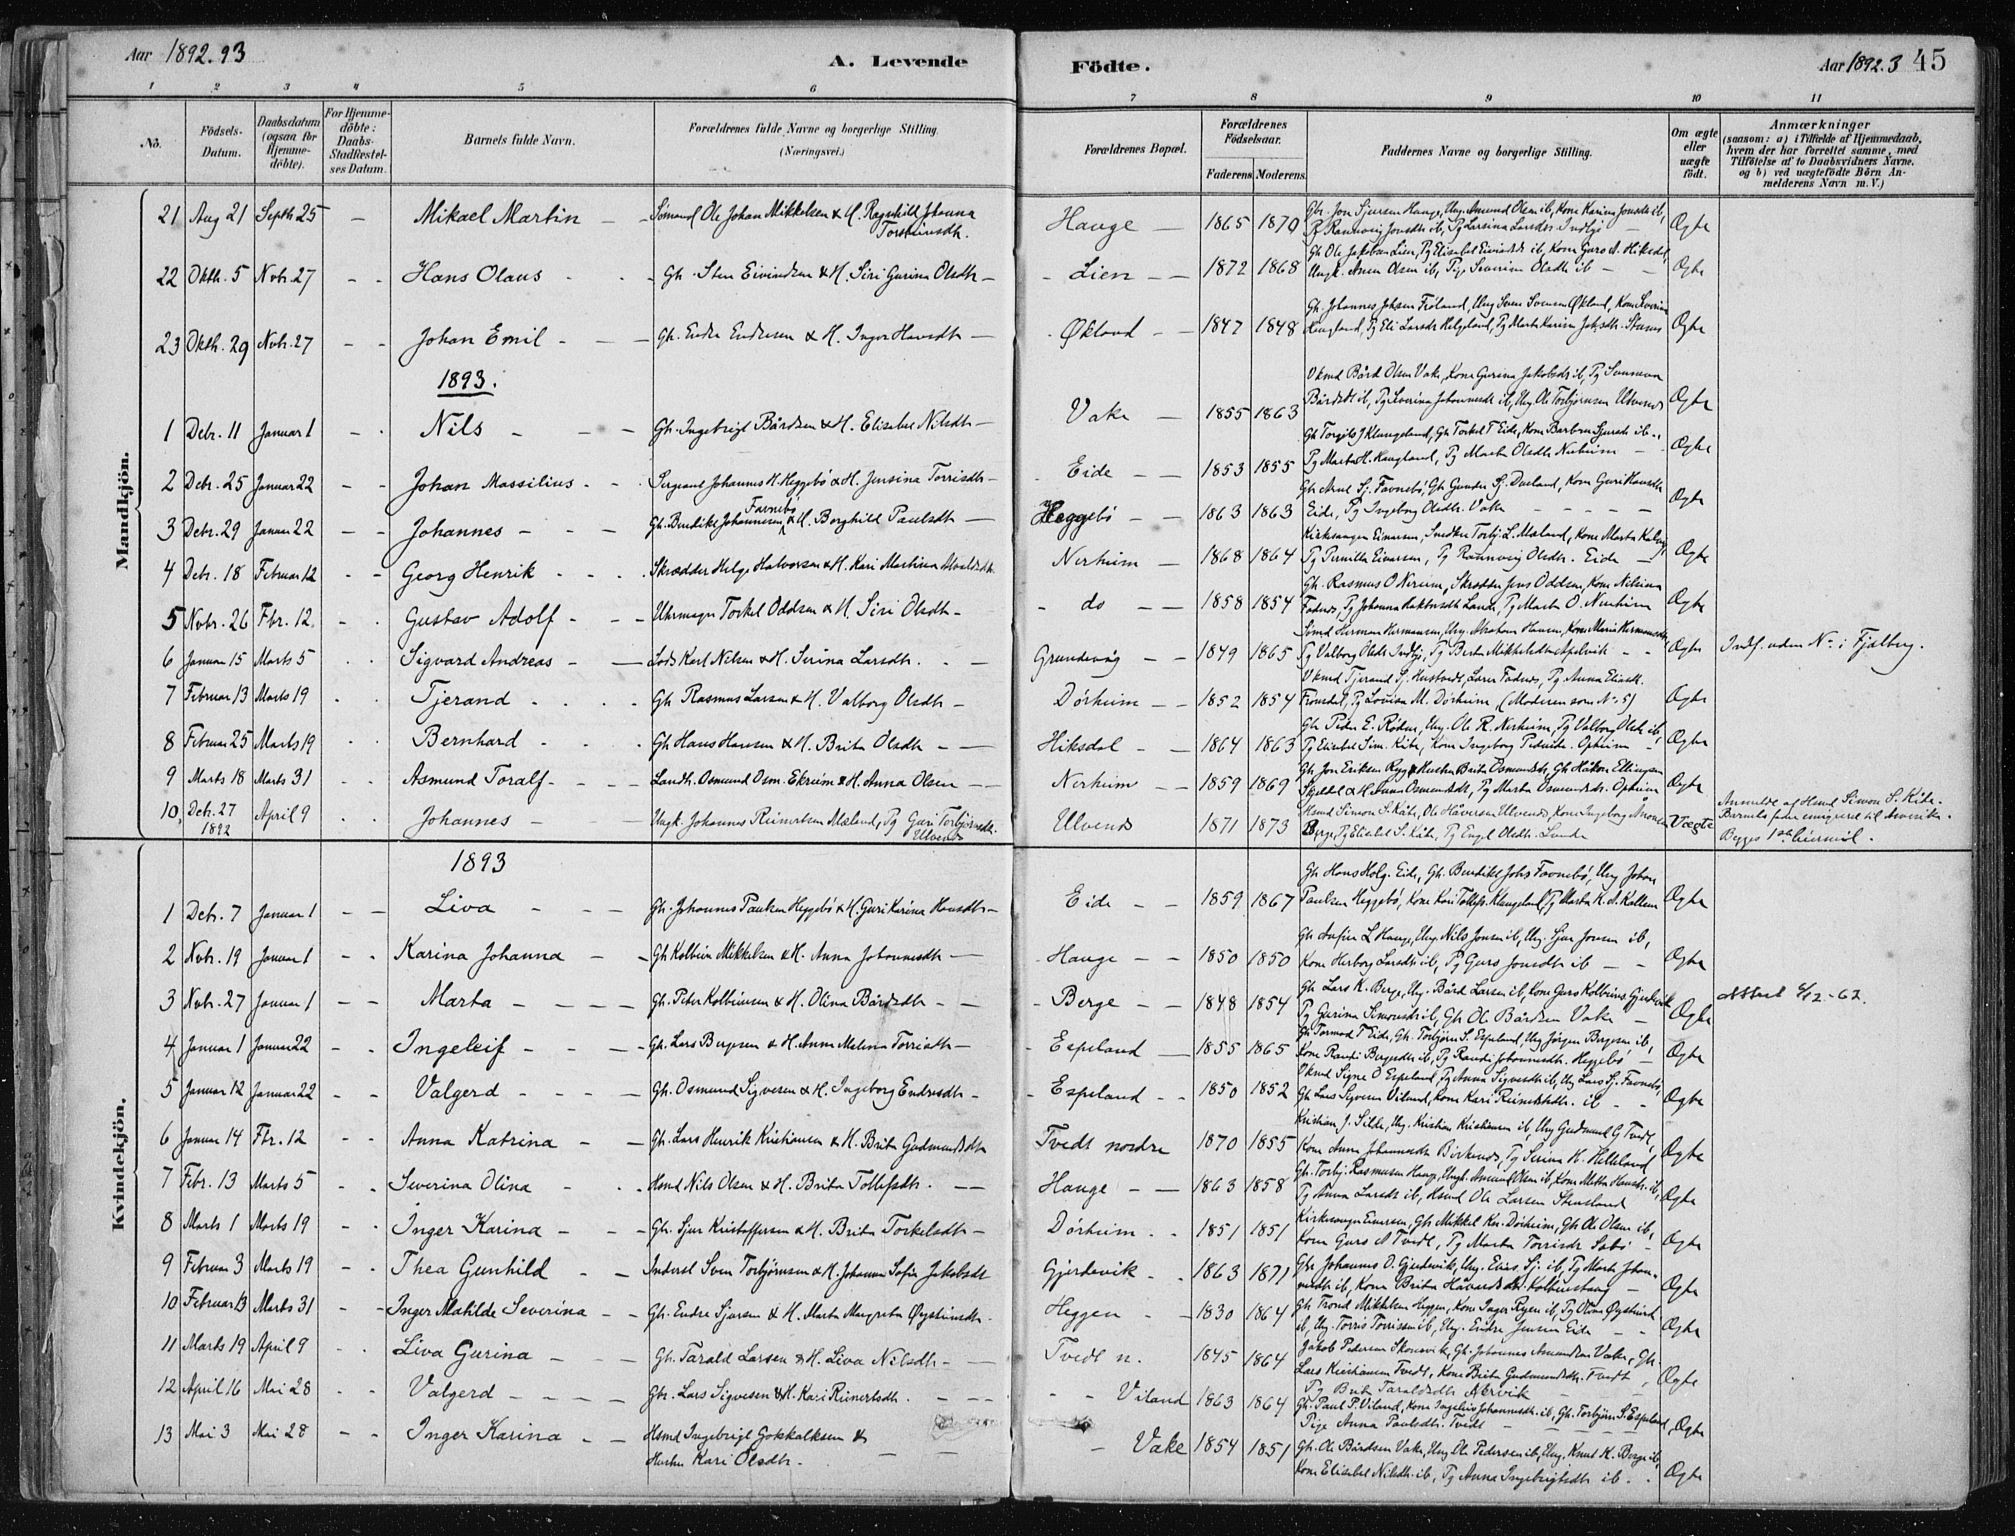 Aar 1892.93
A. Levende
Födte.
Aar 1892.3 45
1 2 3 4 5 6 7 8 9 10 11
No.
Födsels-Datum.
Daabsdatum (ogsaa for Hjemmedöbte).
For Hjemmedöbte: Daabs-Stadfestelses Datum.
Barnets fulde Navn.
Forældrenes fulde Navne og borgerlige Stilling. (Næringsvei.)
Forældrenes Bopæl.
Forældrenes Födselsaar.
Faderens Moderens.
Faddernes Navne og borgerlige Stilling.
Om ægte eller uægte födt.
Anmærkninger
(saasom: a) i Tilfælde af Hjemmedaab, hvem der har forrettet samme, med Tilföielse af to Daabsvidners Navne, og b) ved uægtefödte Börn Anmelderens Navn m. V.)
Mandkjön.
21 Aug 21 Septb 25 - Mikael Martin - Sömand Ole Johan Mikkelsen & H. Ragnhild Johanna Torsteinsdtr. Hauge - 1865 1870 Gbr. Jon Sjursen Hauge, Ung. Amund Olsen ib, Kone Karina Jonsdtr ib, Pg Rannveig Jonsdtr ib, Pg Larsina Larsdtr Indbjo Ægte
22 Oktb. 5 Novb. 27 - - Hans Olaus - Gbr. Sten Eivindsen & H. Siri Gurina Olsdtr - Lien - - 1872 1868 Gb Ole Jakobsen Lien, Pg Elisabet Eivindsdtr ib, Kone Guro A. Hiksdal, Ungk. Anen Olsen ib, Pige Severine Olsdtr ib - Ægte
23 Oktb. 29 Novb. 27 - - Johan Emil - - Gb. Endre Endresen & H. Inger Hansdtr - Økland - - 1847 1848 Gb Johannes Johsen Fröland, Ung Svend Svensen Økland, Kone Severine Haugland, Pg Eli Larsdtr Helgeland, Pg Marta Karina Johsdtr. Stumo Ægte
1893.
1 Debr. 11 Januar 1 - - Nils - - Gb. Ingebrigt Bårdsen & H. Elisabet Nilsdtr - Vake - 1855 1863 Okmd Bård Olsen Vake, Kone Gurina Jakobsdtr ib, Pg Sunneva Bårdsdtr ib, Pg Severina Johannesdtr ib, Ung Ole Torbjörnsen Ulvenes Ægte
2 Debr. 25 Januar 22 - - Johan Massilius - - Sergeant Johannes H. Heggebö & H. Jensina Torrisdtr - Eide - - 1853 1855 Gb Torgils J Klungeland, Gb Torkel T Eide, Kone Barbra Sjursdtr ib, Pg Marta H. Haugland, Pg Marta Olsdtr Nerheim - Ægte
3 Debr. 29 Januar 22 - - Johannes - - - Gb. Bendikt Johannesen Favnebö & H. Borghild Paulsdtr - Heggebö - - 1863 1863 Gb Arne Sj. Favnebö, Gb Gunder Sj. Dueland, Kone Guri Hansdtr Eide, Pg Ingeborg Olsdtr. Vake - Ægte
4 Debr. 18 Februar 12 - - Georg Henrik - - - Skrædder Helge Halvorsen & H. Kari Martina Nerheim - 1868 1864 Kirkesanger Einersen, Snedker Torbj. L. Mæland, Kone Marta Pg Pernilla Einersen, Pg Rannveig Olsdtr. Eide Ægte
5 Novbr. 26 Fbr. 12. - - Gustav Adolf - - - Uhrmager Torkel Oddsen & H. Siri Olsdtr - do - - 1858 1854 Gb. Rasmus O Nereim, Skrædder Jens Oddsen, Kone Nilsina Fadnes, Pg Johanna Lunde, Pg Marta O. Nerheim Ægte
6 Januar 15 Marts 5 - - Sigvard Andreas - Lods Karl Nilsen & H. Serina Larsdtr. - Grundevåg - - 1849 1865 Sömd Herman Hermansen, Ung. Abraham Hansen, Kone Maria Hermansdtr, Pg Valborg Olsdtr Indbjo, Pg Berta Mikkelsdtr Apelvik - - Ægte Indf. uden No. i Fjelberg.
7 Februar 13 Marts 19 - - Tjerand - - - Gb Rasmus Larsen & H. Valborg Olsdtr - Dörheim - - 1852 1854 Okmd Tjerand Sj. Hustvedt, Lærer Fadnes, Pg Anna Eliasdt. Frönsdal, Pg Lovisa M. Dörheim, (Moderen som No. 5) Ægte
8 Februar 25 Marts 19 - - Bernhard - - Gb Hans Hansen & H. Brita Olsdtr - - Hiksdal - - 1864 1863 Gb Peder E. Röden, Ung. Ole R. Nerheim, Pg Valborg Olsdtr ib, Pg Elisabet Sim. Kåte, Kone Ingeborg Pedersdtr. Opheim - Ægte
9 Marts 18 Marts 31 - - Asmund Toralf - - Landh. Osmund Osm. Ekreim & H. Anna Olsen - - Nerheim - 1859 1869 Gb Jon Eriksen Ryg & Hustru Brita Osmundsdtr, Gb Håkon Ellingsen & H. Anna Osmundsdtr, Pg Marta Osmundsdtr. Opheim Ægte
10, Debr. 27 1892 April 9 - - Johannes - - Ungk. Johannes Reinertsen Mæland, Pg Guri Torbjörnsdtr. Ulvenes Ulvenes 1871 1873 Hsmd Simon S. Kåte, Ole Håversen Ulvenes, Kone Ingeborg Ånonsen Berge, Pg Elisabet S. Kåte, Pg Engel Olsdtr. Lunde Uægte Anmeldt af Hsmd Simon S. Kåte. Barnets fader emigreret til Amerika. Begges 1ste Leiermål.
Kvindekjön.
1893
1 Debr. 7 Januar 1 - - Liva - - - Gb. Johannes Paulsen Heggebö & H. Guri Karina Hansdtr - Eide - - 1859 1867 Gb Hans Helg. Eide, Gb. Bendikt Johs Favnebö, Ung Johan Paulsen Heggebö, Kone Kari Tollefs. Klungeland, Pg Marta K. A. Kallem Ægte
2 Novb. 19 Januar 1 - - Karina Johanna - - Gb Kolbein Mikkelsen & H. Anna Johannesdtr - Hauge - - 1850 1850 Gb Anfin L Hauge, Ung. Nils Jonsen ib, Ung. Sjur Jonsen ib, Kone Herborg Larsdtr ib, Pg Guro Jonsdtr ib - - Ægte
3 Novb. 27 Januar 1 - - Marta - - - - Gb. Peter Kolbeinsen & H. Olina Bårdsdtr - - Berge - - 1848 1854 Gb Lars K. Berge, Ung. Bård Larsen ib, Kone Guro Kolbeins. Gjerdevik, Pg Gurina Simonsdtr ib, Gb Ole Bårdsen Vake - Ægte Attest 4/12-62.
4 Januar 1 Januar 22 - - Ingeleif - - - Gb. Lars Bergesen & H. Anna Malena Torrisdtr - Espeland - 1855 1865 Gb Tormod T Eide, Gb. Torbjörn S. Espeland, Ung Jörgen Bergesen ib, Kone Randi Bergesdtr ib, Pg Randi Johannesdtr. Heggebö - Ægte
5 Januar 12 Januar 22 - - Valgerd - - - Gb. Osmund Sigvesen & H. Ingeborg Endresdtr - Espeland - - 1850 1852 Okmd Signe O Espeland, Pg Anna Sigvesdtr ib, Ung Lars Sj. Favnebö, Gb Lars Sigvesen Viland, Kone Kari Reinertsdtr. ib - - Ægte
6 Januar 14 Fbr. 12 - - Anna Katrina - - Gb. Lars Henrik Kristiansen & H. Brita Gudmundsdtr Tvedt nordre 1870 1855 Kristian J. Silde, Ung. Kristian Kristiansen ib, Ung Gudmund G Tvedt, Kone Anna Johannesdtr Birkenes, Pg Serina H. Helleland Ægte
7 Febr. 13 Marts 5 - - Severina Olina - - Hsmd Nils Olsen & H. Brita Tollefsdtr. - - Hauge - - 1863 1858 Gb. Torbj. Rasmusen Hauge, Ungk. Amund Olsen ib, Kone Metta Hansdtr ib, Pg Anna Larsdtr ib, Hsmd Ole Larsen Stensland Ægte
8 Marts 1 Marts 19 - - Inger Karina - - - Gb. Sjur Kristoffersen & H. Brita Torkelsdtr - Dörheim - - 1851 1851 Kirkesanger Einersen, Gb Mikkel Kn. Dörheim, Gb Ole Olsen ib, Kone Guro A Tvedt, Pg Marta Torrisdtr Sæbö - Ægte
9 Februar 3 Marts 19 - - Thea Gunhild - - Inderst Sven Torbjörnsen & H. Johanne Sofie Jakobsdt Gjerdevik - - 1863 1871 Gbr Johannes O. Gjerdevik, Ung. Elias Sj. ib, Pg Marta Johannesdtr ib, Kone Brita Håversdtr. Kolbeinshaug - Ægte
10 Februar 13 Marts 31 - - Inger Matilde Severina - - Gb. Endre Sjursen & H. Marta Margreta Øysteinsdtr. Heggen - - 1830 1864 Gb Trond Mikkelsen Heggen, Kone Inger Ryen ib, Pg Oline Øysteinsd ib, Ung. Torris Torrisen ib, Ung. Endre Jensen Eide - - Ægte
11 Marts 19 April 9 - - Liva Gurina - - Gb. Tarald Larsen & H. Liva Nilsdtr - - Tvedt n. 1845 1864 Jakob Pedersen Skonevik, Gb. Johannes Amundsen Vake, Gb. Lars Kristiansen Tvedt, Kone Brita Gudmundsdtr. Tvedt, Pg Brita Taraldsdtr Akrvik Ægte
12 April 16 Mai 28 - - Valgerd - - - Gbr. Lars Sigvesen & H. Kari Reinertsdtr. - - - Viland 1863 1864 Gb. Paul P. Viland, Kone Ingeleiv Johannesdtr. ib, Gb. Torbjörn S. Espeland, Pige Anna Paulsdtr. Tvedt - Ægte
13 Mai 3 Mai 28 - - Inger Karina - - Hsmd Ingebrigt Gotskalksen & Hustru Kari Olsdtr. - - - Vake 1854 1851 Gb. Ole Bårdsen Vake, Ung Ole Pedersen ib, Ung. Knut K. Berge ib, Kone Elisabet Nilsdtr. ib, Pg Anna Ingebrigtsdtr ib - - Ægte